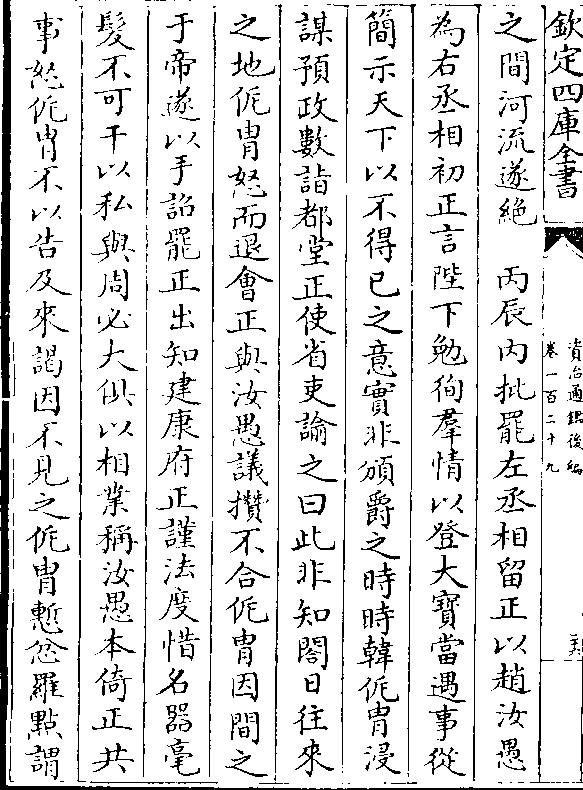 欽定四庫全書
資治通鑑後編
卷一百二十九
之間河流遂絶　丙辰内批罷左丞相留正以趙汝愚
為右丞相初正言陛下勉徇羣情以登大寶當遇事從
簡示天下以不得已之意實非頒爵之時時韓侂胄浸
謀預政數詣都堂正使省吏諭之曰此非知閤日往來
之地侂胄怒而退會正與汝愚議攅不合侂胄因間之
于帝遂以手詔罷正出知建康府正謹法度惜名器毫
髮不可干以私與周必大俱以相業稱汝愚本倚正共
事怒侂胄不以告及來謁因不見之侂胄慙忿羅點謂